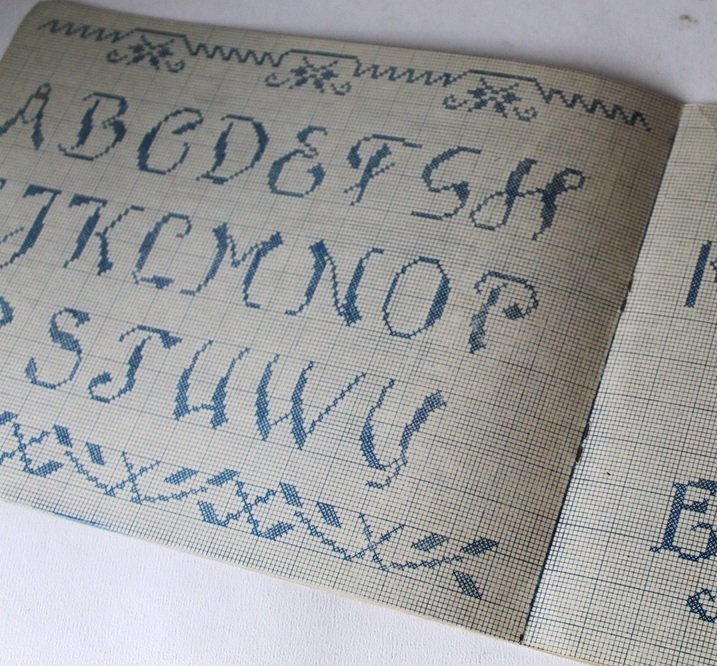 A B C D E F G H
J K L M N O P
S T U W Y